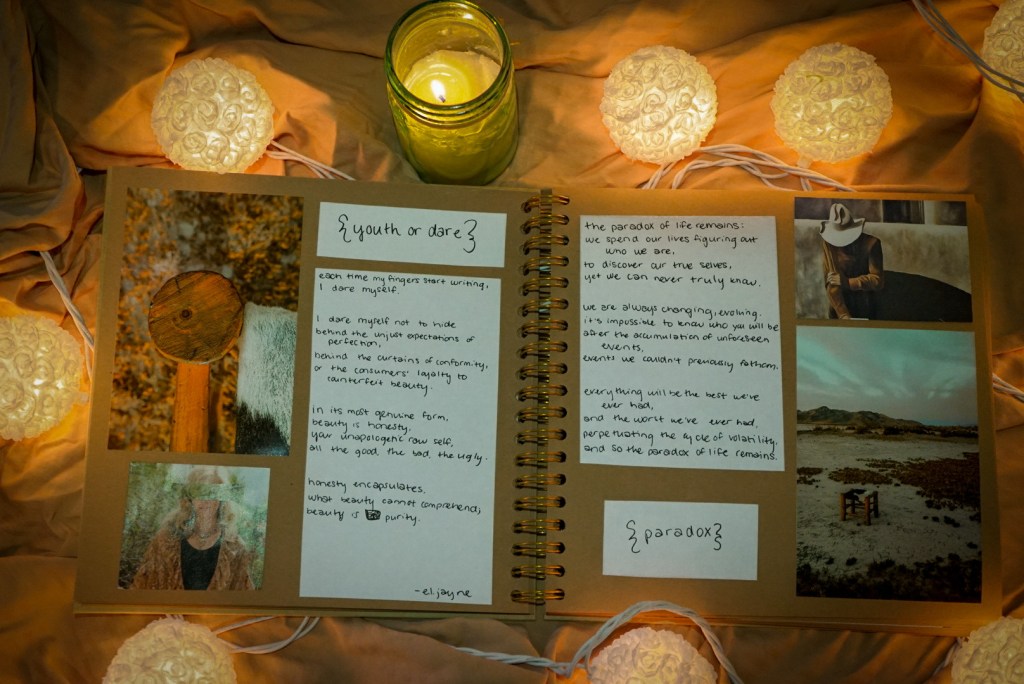 {youth or dare}
each time my fingers start writing,
I dare myself.
I dare myself not to hide
behind the unjust expectations of
perfection,
behind the curtains of conformity,
or the consumers' loyalty to
counterfeit beauty.
in its most genuine form,
beauty is honesty.
your unapologetic raw self,
all the good, the bad, the ugly.
honesty encapsulates,
what beauty cannot comprehend;
beauty is purity.
-el.jayne
the paradox of life remains:
we spend our lives figuring out
who we are,
to discover our true selves,
yet we can never truly know.
we are always changing, evolving.
it's impossible to know who you will be
after the accumulation of unforeseen
events,
events we couldn't previously fathom.
everything will be the best we've
ever had,
and the worst we've ever had,
perpetuating the cycle of volatility.
and so the paradox of life remains.
{paradox}